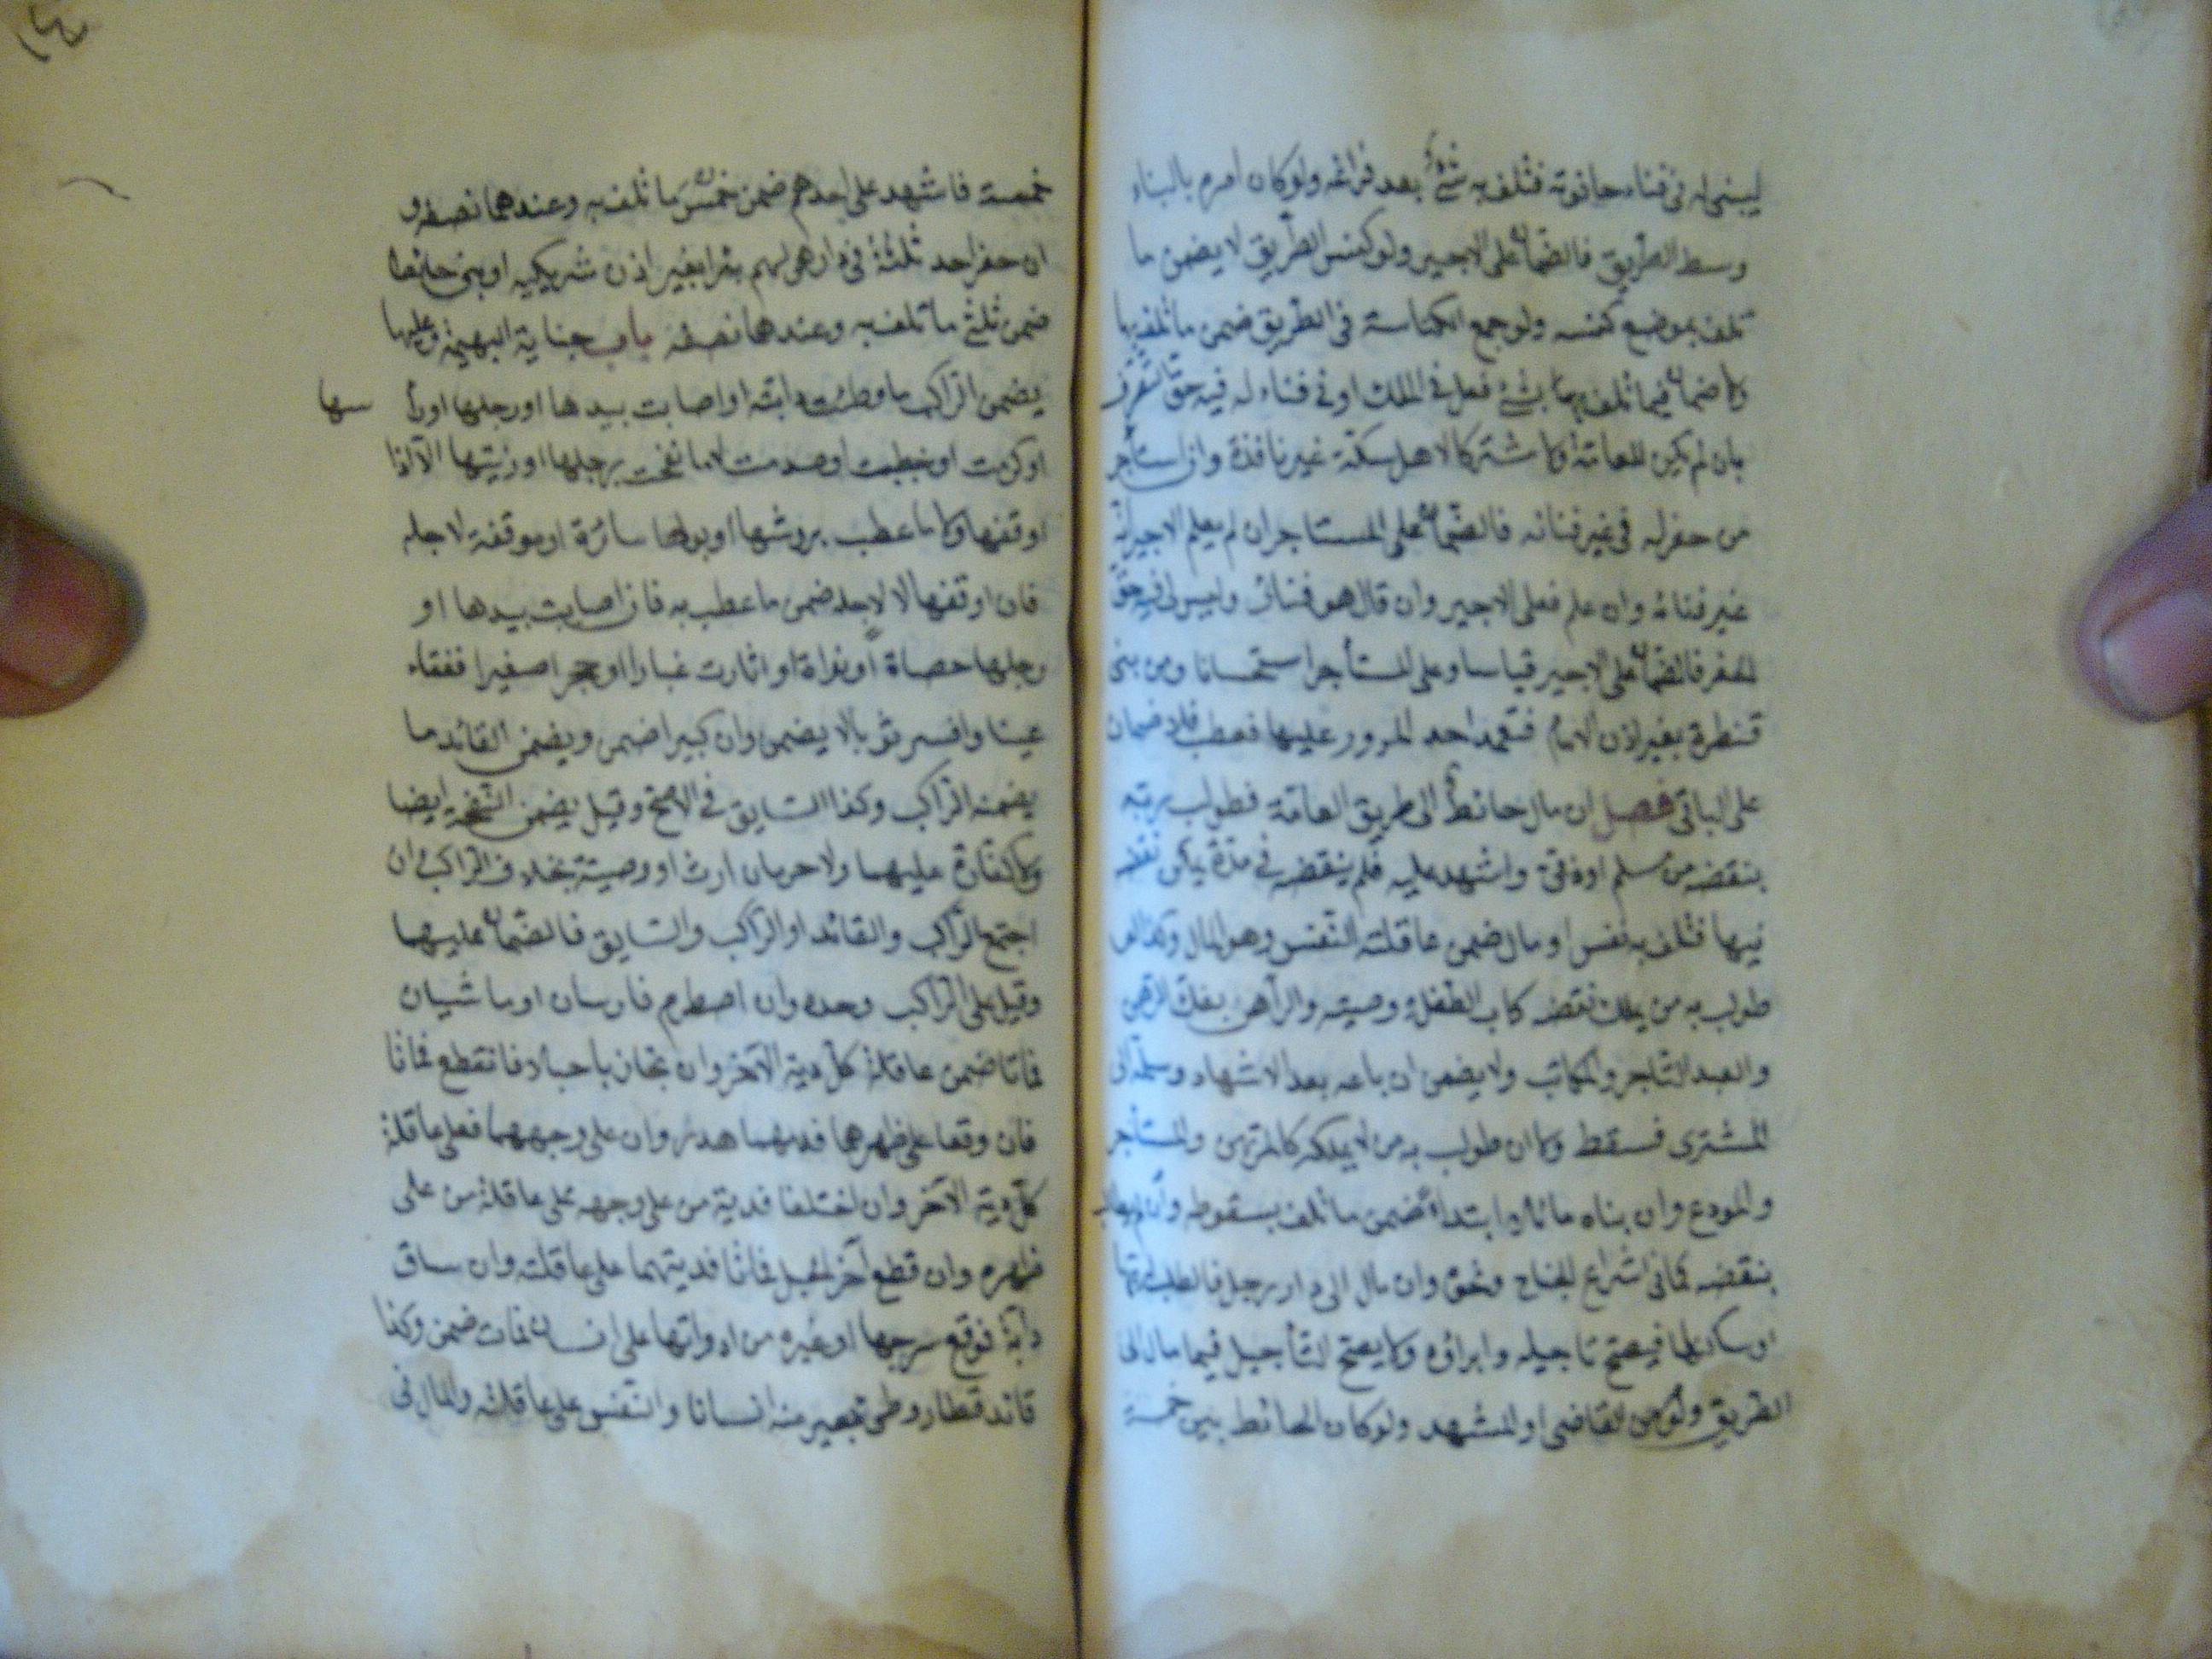 ليبنى له فى فناء حانوته فتلف به شئ بعد فراغه ولو كان امره بالبناء
وسط الطريق فالضمان على الاجير ولو كنس الطريق لا يضمن ما
تلف بموضع كنسه ولو جمع الكناسة فى الطريق ضمن ما تلف بها
ولا ضمان فيما تلف بها بشئ فعل فى الملك او فى فناء له فيه حق التصرف
بان لم يكن للعامة ولا مشتركا لاهل سكة غير نافذة وان استأجر
من حفر له فى غير فنائه فالضمان على المستاجر ان لم يعلم الاجير انه
غير فنائه وان علم فعلى الاجير وان قال هو فنائى وليس لى فيه حق
الحفر فالضمان على الاجير قياسا وعلى المستأجر استحسانا ومن بنى
قنطرة بغير اذن الامام فتعمد احد المرور عليها فعطب فلا ضمان
على البانى فصل ان مال حائط الى طريق العامة فطولب ربه
بنقضه من مسلم او ذمى واشهد عليه فلم ينقضه فى مدة يمكن نقضه
فيها فتلف به نفس او مال ضمن عاقلته النفس وهو المال وكذا لو
طولب به من يملك نقضه كاب الطفل او وصيه والراهن بفك الرهن
والعبد التاجر والمكاتب ولا يضمن ان باعه بعد الاشهاد وسلمه الى
المشترى فسقط ولا ان طولب به من لا يملكه كالمرتهن والمستأجر
والمودع وان بناه مائلا ابتداء ضمن ما تلف بسقوطه وان لم يطالب
بنقضه كما فى اشراع الجناح ونحوه وان مال الى دار رجل فالطلب لربها
او ساكنها فيصح تاجيله وابراؤه ولا يصح التأجيل فيما مال الى
الطريق ولو من القاضى او المشهد ولو كان الحائط بين خمسة
خمسة فاشهد على احدهم ضمن خمس ما تلف به وعندهما نصفه و
ان حفر احد ثلثة فى دار هى لهم بئرا بغير اذن شريكيه او بنى حائطا
ضمن ثلثى ما تلف به وعندهما نصفه باب جناية البهيمة وعليها
يضمن الراكب ما وطئت دابته او اصابت بيدها او رجلها او رأسها
او كدمت او خبطت او صدمت لا ما نفحت برجلها او ذنبها الا اذا
اوقفها ولا ما عطب بروثها او بولها سائرة او موقفة لاجله
فان اوقفها لا لاجله ضمن ما عطب به فان اصابت بيدها او
رجلها حصاة او نواة او اثارت غبارا او حجرا صغيرا ففقاء
عينا وافسد ثوبا لا يضمن وان كبيرا ضمن ويضمن القائد ما
يضمنه الراكب وكذا السايق فى الاصح وقيل يضمن النفحة ايضا
ولا كفارة عليهما ولا حرمان ارث او وصية بخلاف الراكب وان
اجتمع الراكب والقائد او الراكب والسايق فالضمان عليهما
وقيل على الراكب وحده وان اصطدم فارسان او ماشيان
فماتا ضمن عاقلة كل دية الآخر وان تجاذبا حبلا فانقطع فماتا
فان وقعا على ظهرهما فدمهما هدر وان على وجههما فعلى عاقلة
كل دية الآخر وان اختلفا فدية من على وجهه على عاقلة من على
ظهره وان قطع آخر الحبل فماتا فديتهما على عاقلته وان ساق
دابة فوقع سرجها او غيره من ادواتها على انسان فمات ضمن وكذا
قائد قطار وطئ بعير منه انسانا والنفس على عاقلته والمال فى